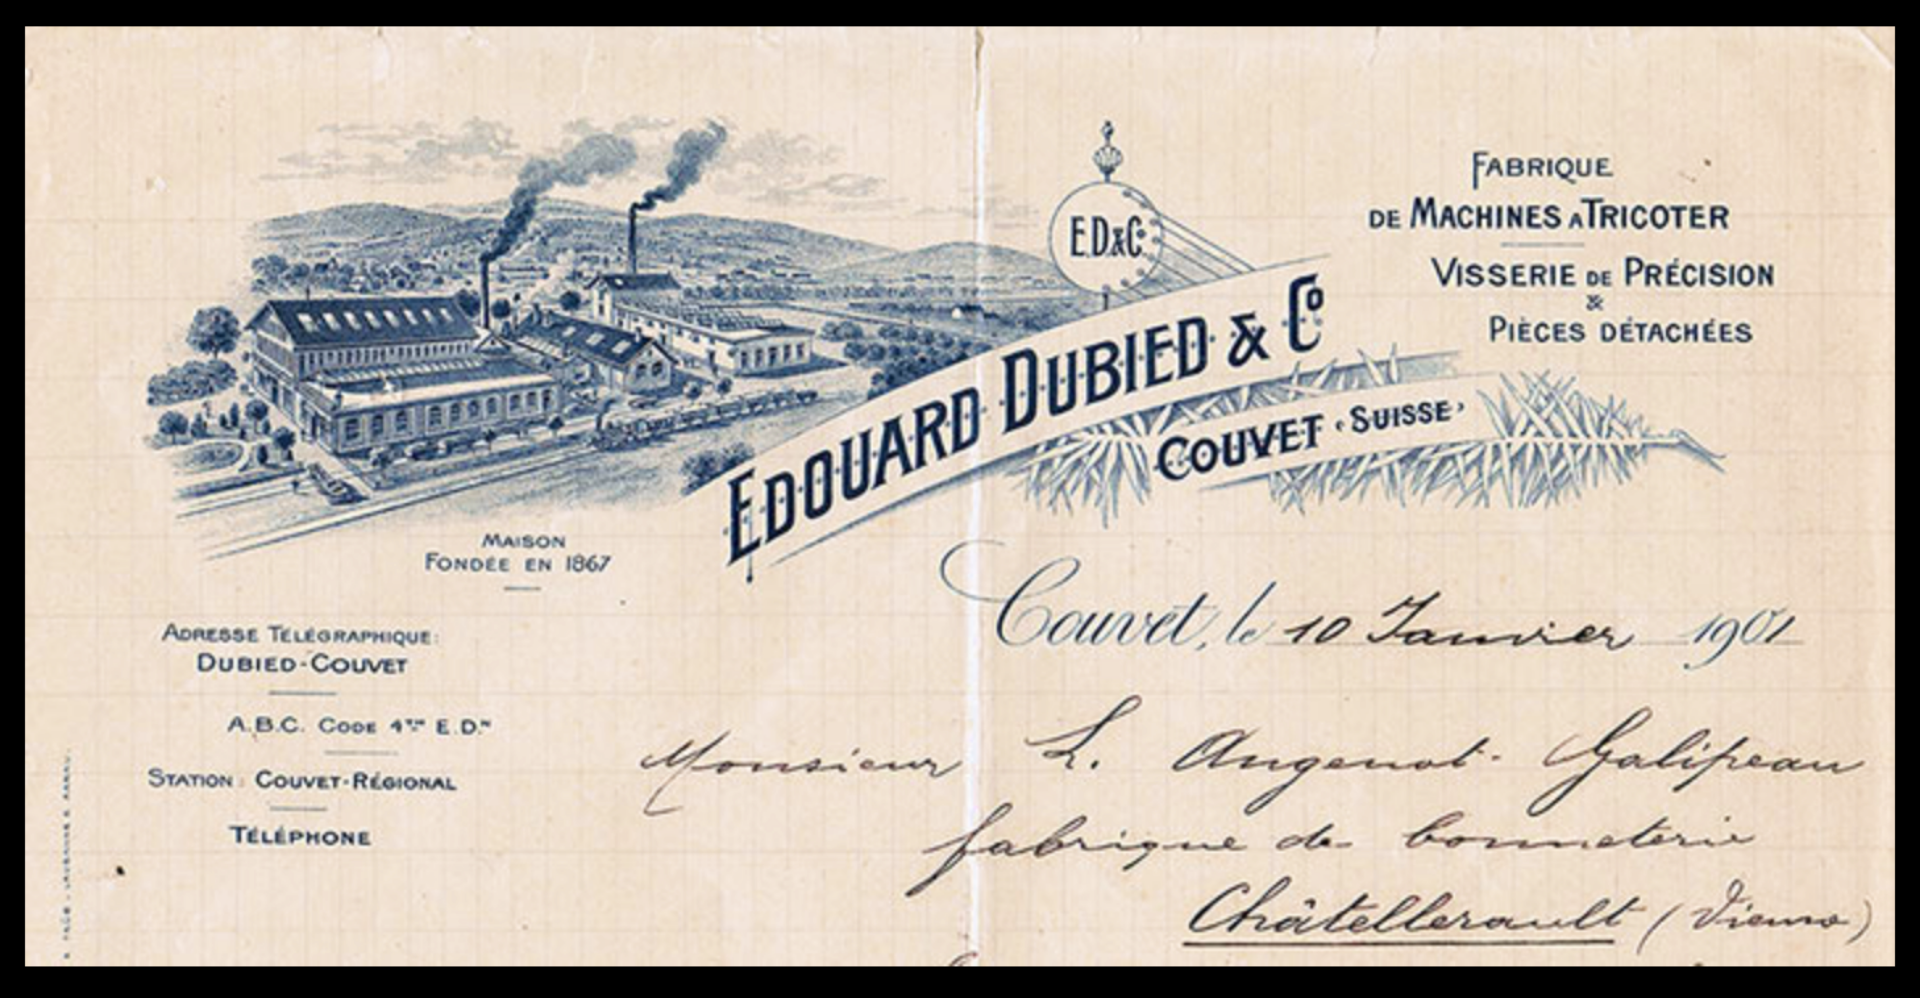 E.D.&C.
FABRIQUE
DE MACHINES A TRICOTER
VISSERIE DE PRÉCISION
&
PIÈCES DÉTACHÉES
EDOUARD DUBIED & Co
COUVET «SUISSE»
MAISON
FONDÉE EN 1867
ADRESSE TÉLÉGRAPHIQUE:
DUBIED-COUVET
A.B.C. CODE 4TH E.DN
STATION: COUVET-RÉGIONAL
TÉLÉPHONE
Couvet, le 10 Janvier 1901
Monsieur L. Angenot-Galipeau
fabrique de bonneterie
Châtellerault (Vienne)